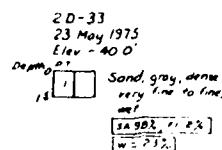 2D-33
23 May 1975
Elev - 40.0'
Depth, FT
0
1
1.5
Sand, gray, dense
very fine to fine,
wet
SA 98%, FI 2%
W = 23%